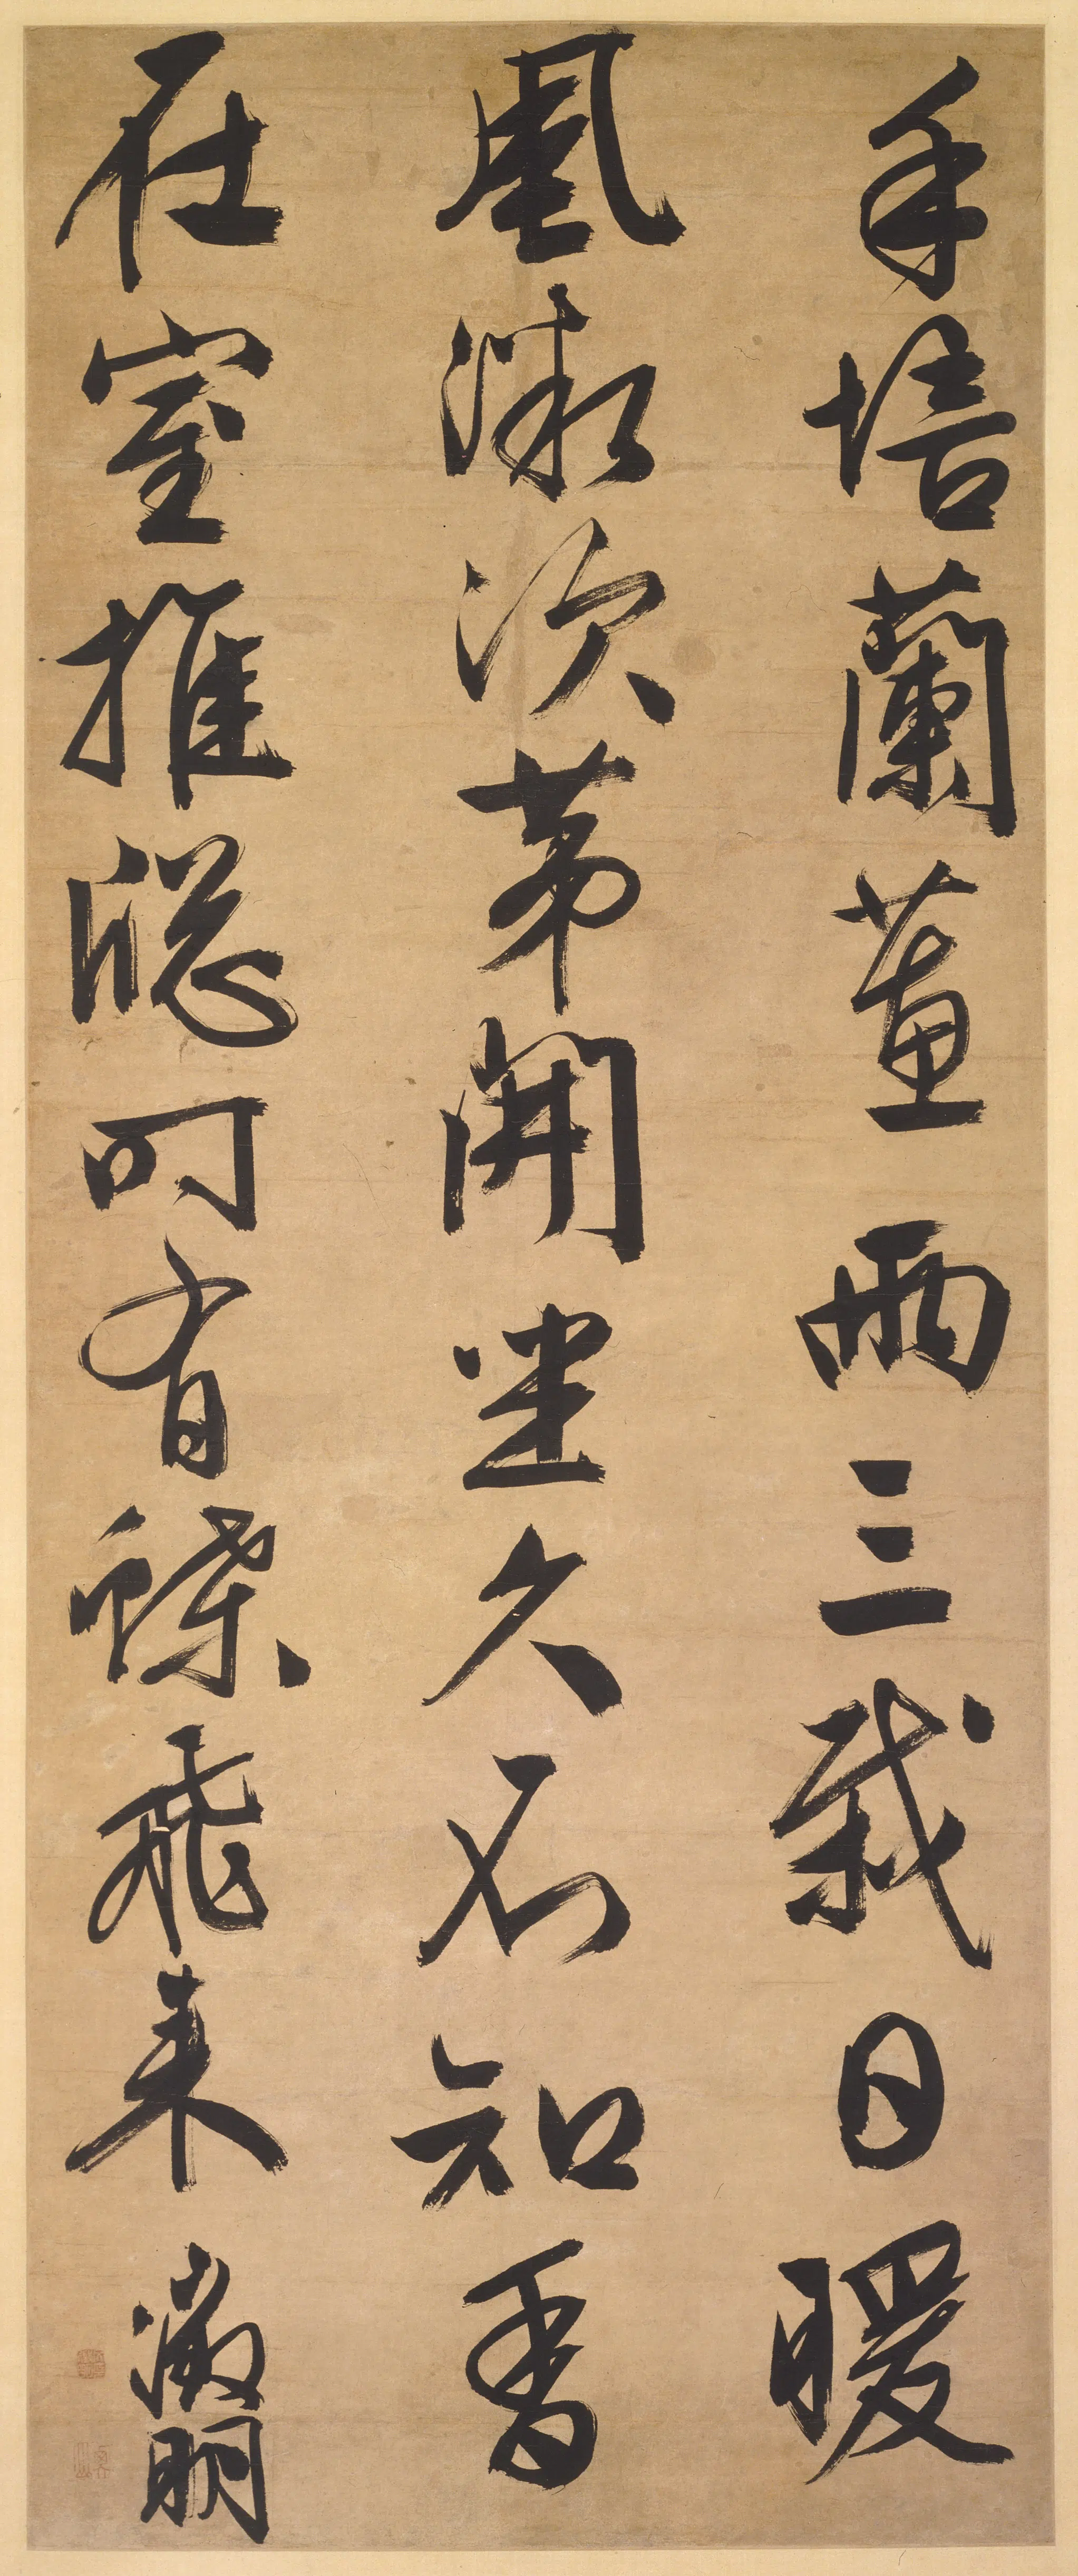 手培蘭蕙兩三栽日暖
風微次苐開坐久不知香
在室推窓时有蝶飛来
徵明